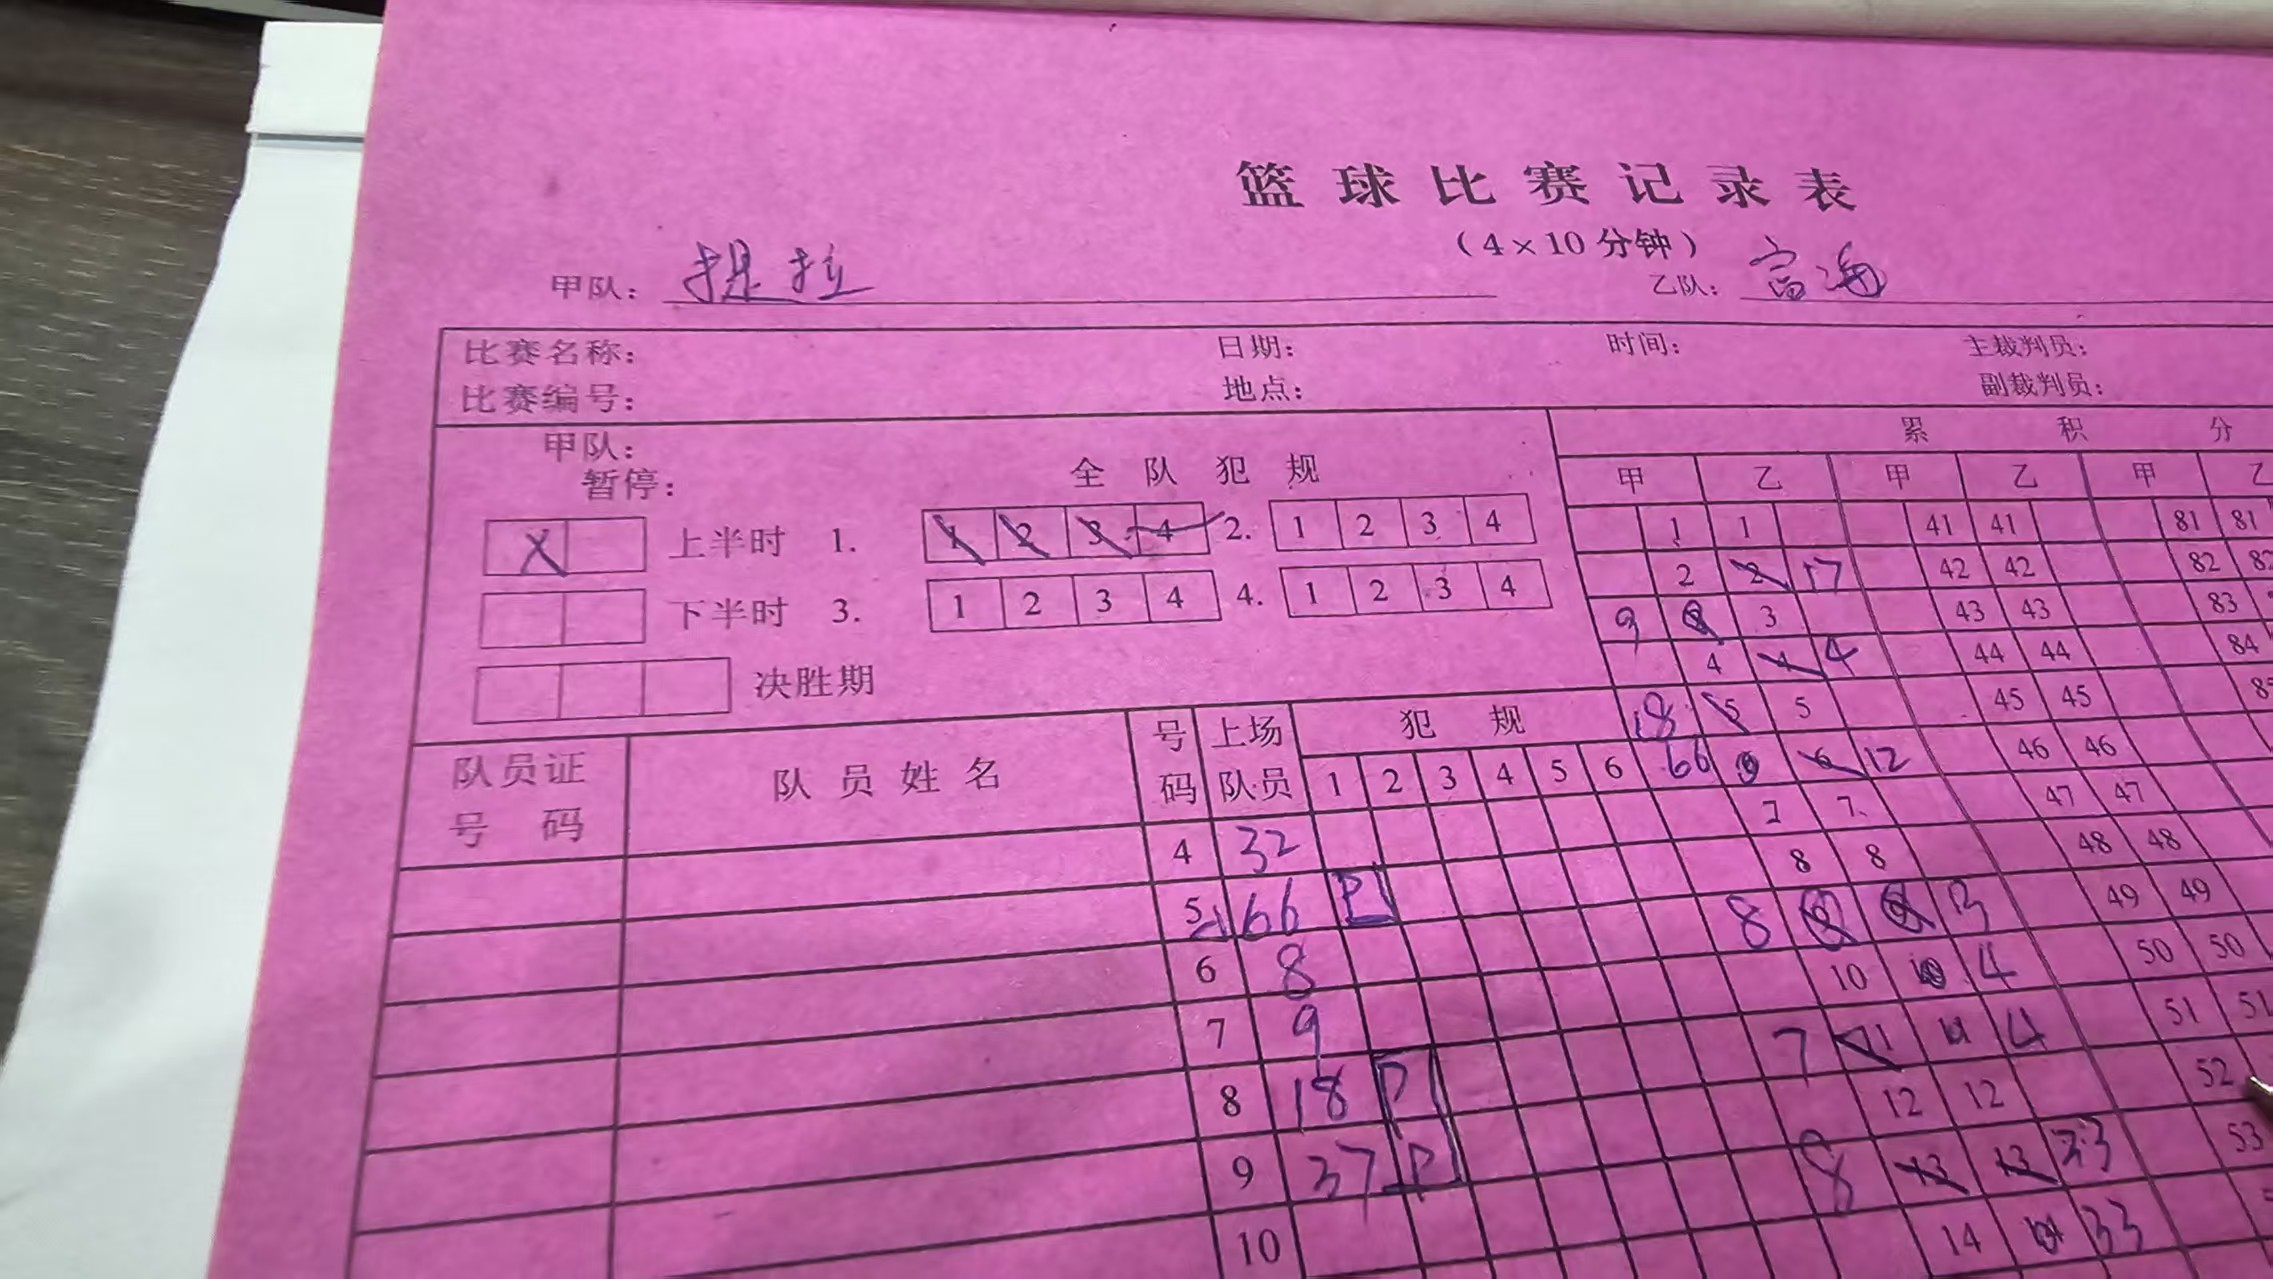 篮球比赛记录表
（4×10分钟）
甲队： 提拉 乙队： 富海
比赛名称： 日期： 时间： 主裁判员：
比赛编号： 地点： 副裁判员：
甲队：
暂停： 全队犯规
X 上半时 1. 1 2 3 4 2. 1 2 3 4
下半时 3. 1 2 3 4 4. 1 2 3 4
决胜期
累积分
甲 乙 甲 乙 甲 乙
1 1 41 41 81 81
2 2 17 42 42 82 82
9 3 3 43 43 83
4 4 4 44 44 84
18 5 5 45 45
66 6 6 12 46 46
7 7 47 47
8 8 48 48
8 9 9 3 49 49
10 10 4 50 50
7 11 11 4 51 51
12 12 52
8 13 13 33 53
14 14 33
队员证号码 队员姓名 号码 上场队员 犯规
1 2 3 4 5 6
4 32
5 66 P1
6 8
7 9
8 18 P1
9 37 P1
10